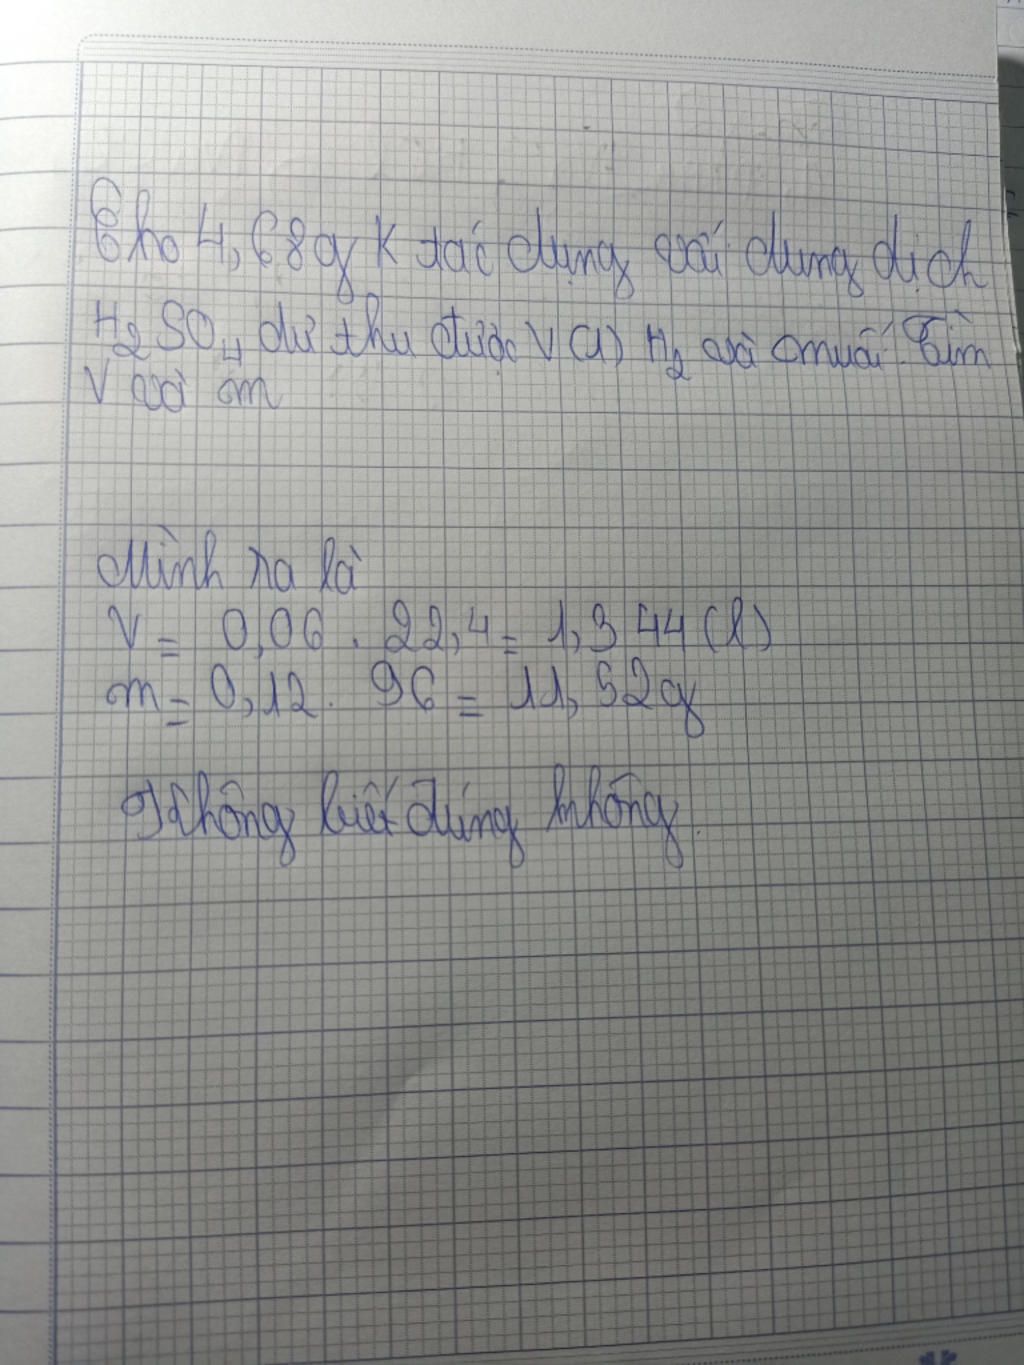 Cho 4,68g K tác dụng với dung dịch
H₂SO₄ dư thu được V (l) H₂ và m muối. Tìm
V và m
Mình ra là
V = 0,06 . 22,4 = 1,344 (l)
m = 0,12 . 96 = 11,52g
Không biết đúng không.